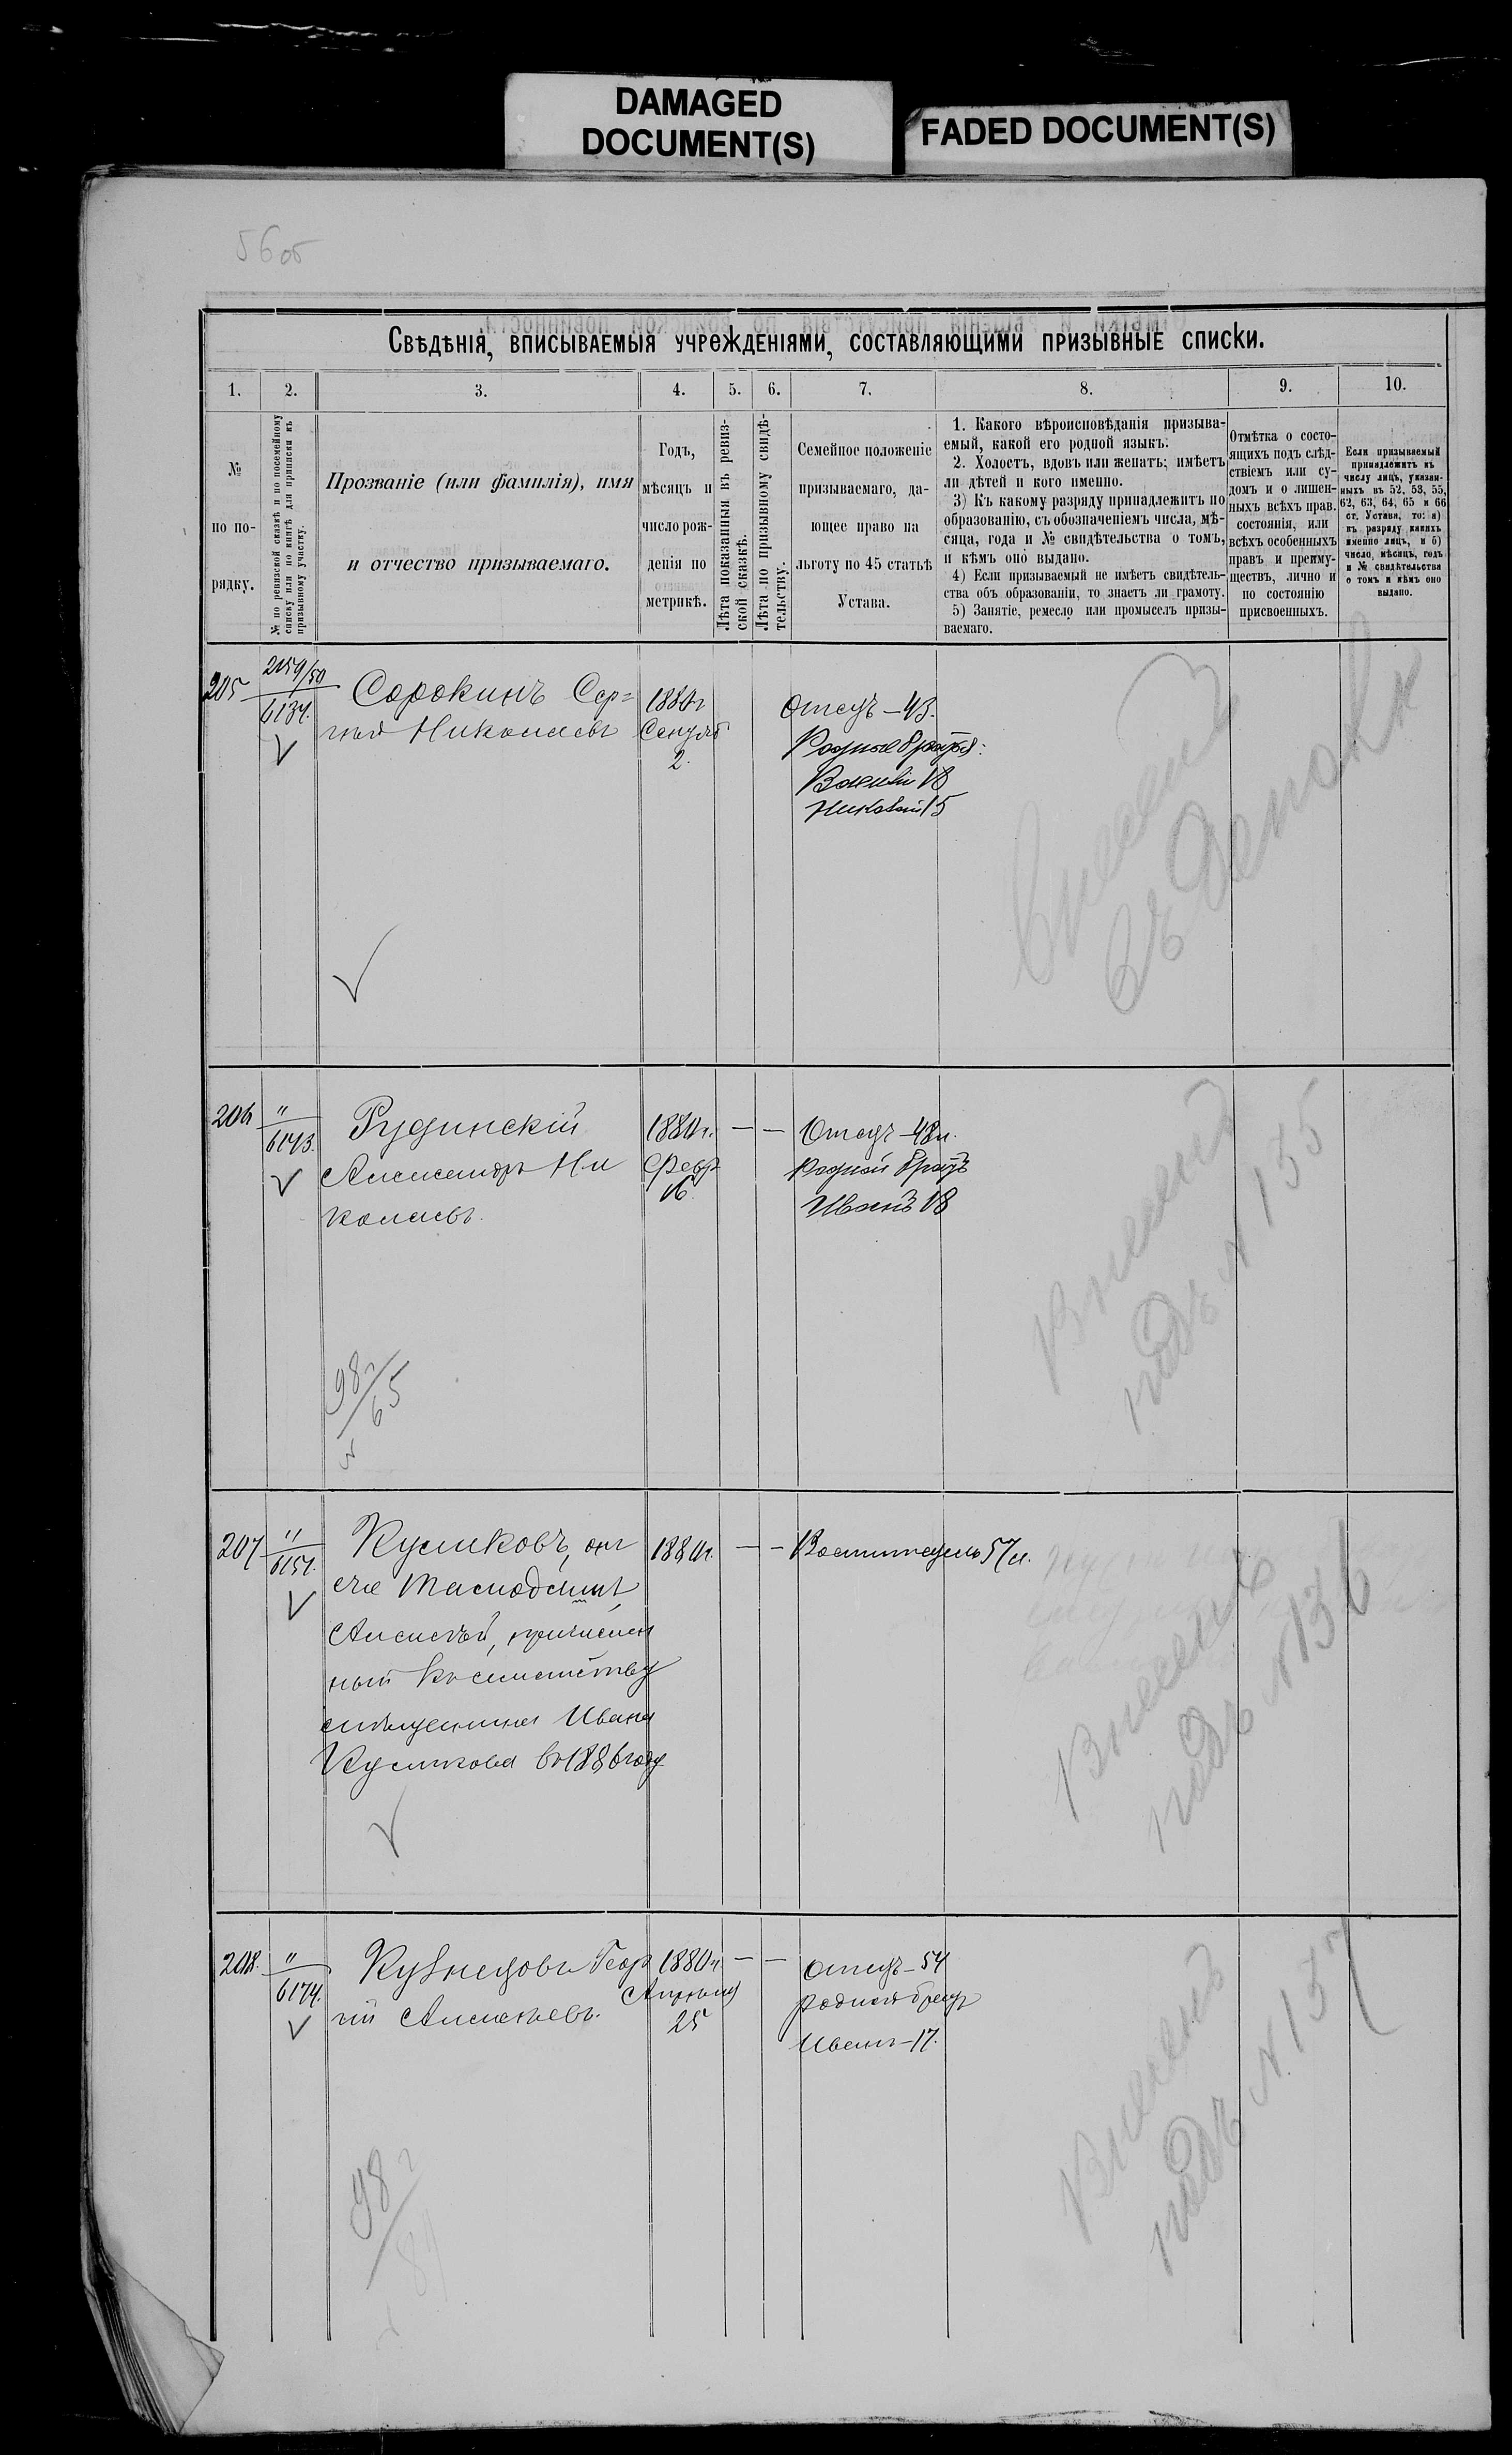 DAMAGED
DOCUMENT(S)
FADED DOCUMENT(S)
56об
Свѣдѣнія, вписываемыя учрежденіями, составляющими призывные списки.
1.
2.
3.
4.
5.
6.
7.
8.
9.
10.
№
по по-
рядку.
№ по ревизской сказкѣ и по посемейному
списку или по книгѣ для приписки къ
призывному участку.
Прозваніе (или фамилія), имя
и отчество призываемаго.
Годъ,
мѣсяцъ и
число рож-
денія по
метрикѣ.
Лѣта показанныя въ ревиз-
ской сказкѣ.
Лѣта по призывному свидѣ-
тельству.
Семейное положеніе
призываемаго, да-
ющее право на
льготу по 45 статьѣ
Устава.
1. Какого вѣроисповѣданія призыва-
емый, какой его родной языкъ.
2. Холостъ, вдовъ или женатъ; имѣетъ
ли дѣтей и кого именно.
3) Къ какому разряду принадлежитъ по
образованію, съ обозначеніемъ числа, мѣ-
сяца, года и № свидѣтельства о томъ,
и кѣмъ оно выдано.
4) Если призываемый не имѣетъ свидѣтель-
ства объ образованіи, то знаетъ ли грамоту.
5) Занятіе, ремесло или промыселъ призы-
ваемаго.
Отмѣтка о состо-
ящихъ подъ слѣд-
ствіемъ или су-
домъ и о лишен-
ныхъ всѣхъ прав.
состоянія, или
всѣхъ особенныхъ
правъ и преиму-
ществъ, лично и
по состоянію
присвоенныхъ.
Если призываемый
принадлежитъ къ
числу лицъ, указан-
ныхъ въ 52, 53, 55,
62, 63, 64, 65 и 66
ст. Устава, то: а)
къ разряду какихъ
именно лицъ, и б)
число, мѣсяцъ, годъ
и № свидѣтельства
о томъ и кѣмъ оно
выдано.
205
2159/50
6134.
Сорокинъ Сер=
гѣй Николаевъ
1880г
Сентяб
2.
Отецъ - 43.
Родные братья:
Василій 18
Николай 15
Внесенъ
206
"
6143.
Рудинскій
Александръ Ни
колаевъ.
1880г.
Февр
16.
Отецъ - 48 л.
Родной братъ
Иванъ 18
98г
65
Внесенъ
подъ № 135
207
"
6151.
Куликовъ, онъ
Алексѣй, причислен
ный къ семейству
священника Ивана
Куликова въ 1886 году
1880г.
Воспитатель 57 л.
Внесенъ
подъ № 136
208.
"
6174.
Кузнецовъ Геор
гій Алексѣевъ.
1880г
Апрѣля
25
Отецъ - 54
родной братъ
Иванъ - 17.
98г
Внесенъ
подъ № 137